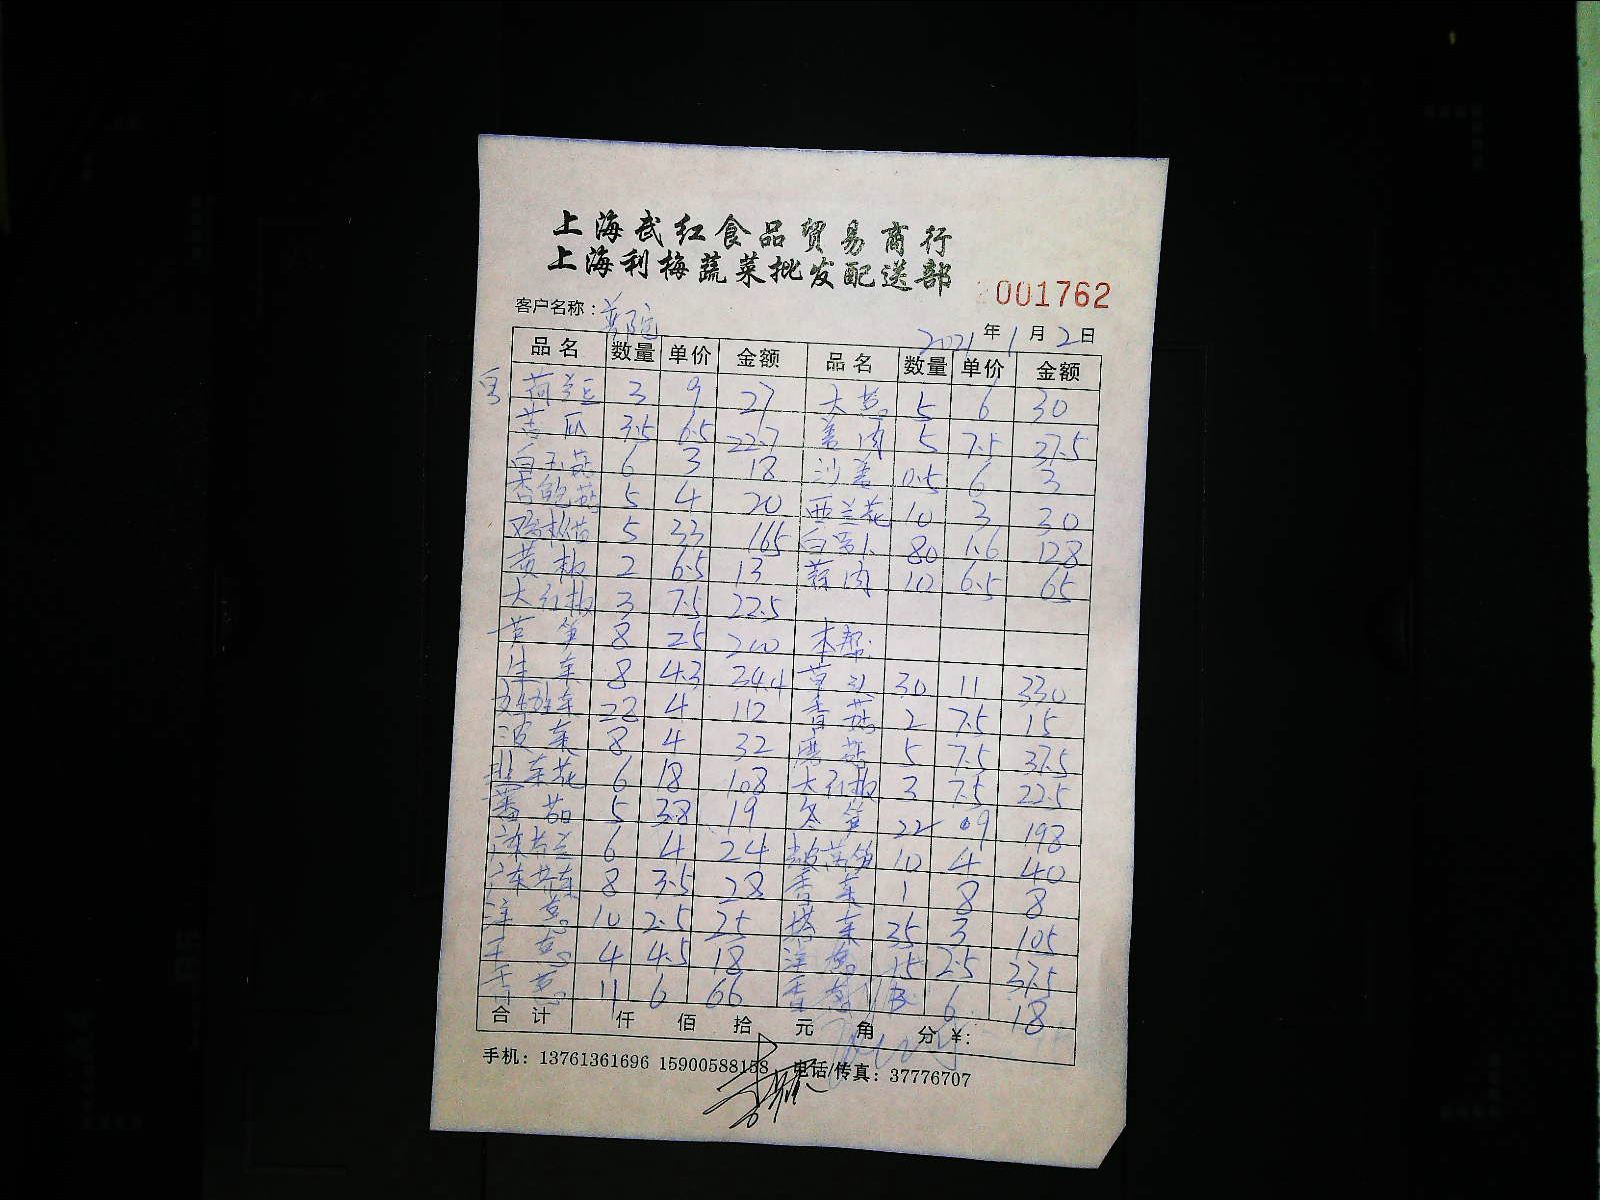 上海武红食品贸易商行
上海利梅蔬菜批发配送部
001762
客户名称：
2021年1月2日
品名 数量 单价 金额 品名 数量 单价 金额
荷兰豆 3 9 27 大葱 5 6 30
苦瓜 3.5 6.5 22.7 姜肉 5 7.5 37.5
白玉菇 6 3 18 沙姜 0.5 6 3
杏鲍菇 5 4 20 西兰花 10 3 30
鸡枞菌 5 33 165 白萝卜 80 1.6 128
黄椒 2 6.5 13 蒜肉 10 6.5 65
大红椒 3 7.5 22.5
芦笋 8 25 200 本帮:
生菜 8 4.3 34.4 草头 30 11 330
娃娃菜 28 4 112 香菇 2 7.5 15
菠菜 8 4 32 蘑菇 5 7.5 37.5
韭菜花 6 18 108 大红椒 3 7.5 22.5
蕃茄 5 3.8 19 冬笋 22 9 198
广东芥兰 6 4 24 莴笋 10 4 40
广东菜 8 3.5 28 香菜 1 8 8
洋葱 10 2.5 25 塔菜 35 3 105
干葱 4 4.5 18 洋葱 15 2.5 37.5
香葱 11 6 66 香葱 3 6 18
合计 仟 佰 拾 元 角 分 ¥:
手机：13761361696 15900588158 电话/传真：37776707